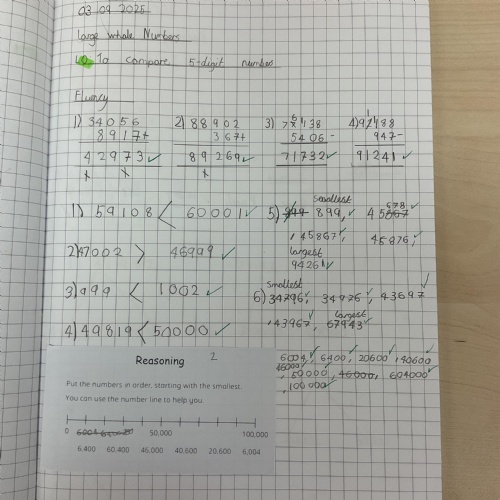 03 09 2025
Large Whole Numbers
LO To compare 5-digit numbers
Fluency
1) 34056 2) 88902 3) 7138 4) 92188
8917+ 367+ 5406- 947-
42973 ✓ 89269 ✓ 71732 ✓ 91241 ✓
1) 59108 < 60001 ✓
2) 47002 > 46999 ✓
3) 999 < 1002 ✓
4) 49819 < 50000 ✓
smallest
5) 899, ✓ 45678 ✓
, 45867 ✓, 45876, ✓
largest
94261 ✓
smallest
6) 34796, ✓ 34976 ✓, 43697 ✓
largest
, 43967 ✓, 67943 ✓
2
6004, ✓ 6400, ✓ 20600 ✓, 40600 ✓
46000, ✓
, 50000, ✓ 46000, 604000 ✓
, 100000 ✓
Reasoning
Put the numbers in order, starting with the smallest.
You can use the number line to help you.
0 50,000 100,000
6,400 60,400 46,000 40,600 20,600 6,004